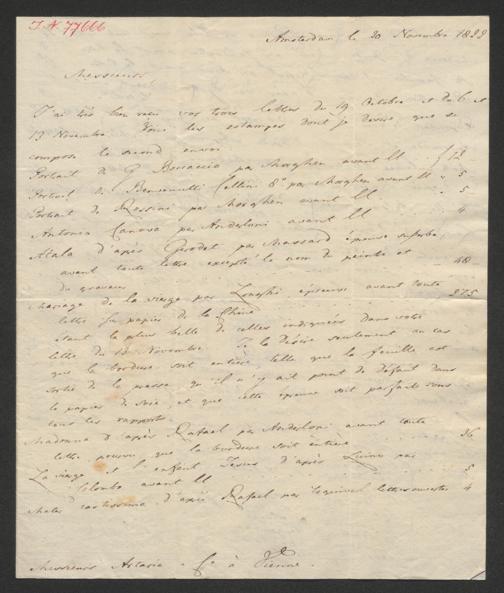 I.N. 77666
Amsterdam le 20 Novembre 1822
Messieurs,
J'ai très bien reçu vos trois lettres du 19 Octobre et du 6 et
13 Novembre. Voici les estampes dont je désire que se
compose le second envoi
Portrait de G Boccaccio par Morghen avant ll f 12
Portrait de Benvenutti Cellini 8° par Morghen avant ll " 5
Portrait de Rossini par Morghen avant ll " 5
Antonio Canova par Anderloni avant ll 4
Atala d'après Girodet par Massard épreuve superbe,
avant toute lettre excepté le nom du peintre et
du graveur 48
Mariage de la vierge par Longhi épreuve avant toute
lettre sur papier de la Chine 275
étant la plus belle de celles indiquées dans votre
lettre du 13 Novembre. Je la désire seulement au cas
que la bordure soit entière telle que la feuille est
sortie de la presse, qu'il n'y ait point de défaut dans
le papier de soie, et que cette épreuve soit parfaite sous
tous les rapports
Madonna d'après Rafael par Anderloni avant toute
lettre pourvu que la bordure soit entière 36
La vierge et l'enfant Jesus d'après Luini par
avant ll 5
Mater castissima d'après Rafael par lettres ouvertes 4
Messieurs Artaria & Co à Vienne.